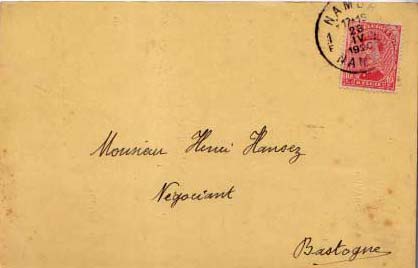 NAMU
17-18
28
IV
1920
NAM
Monsieur Henri Hansez
Négociant
Bastogne